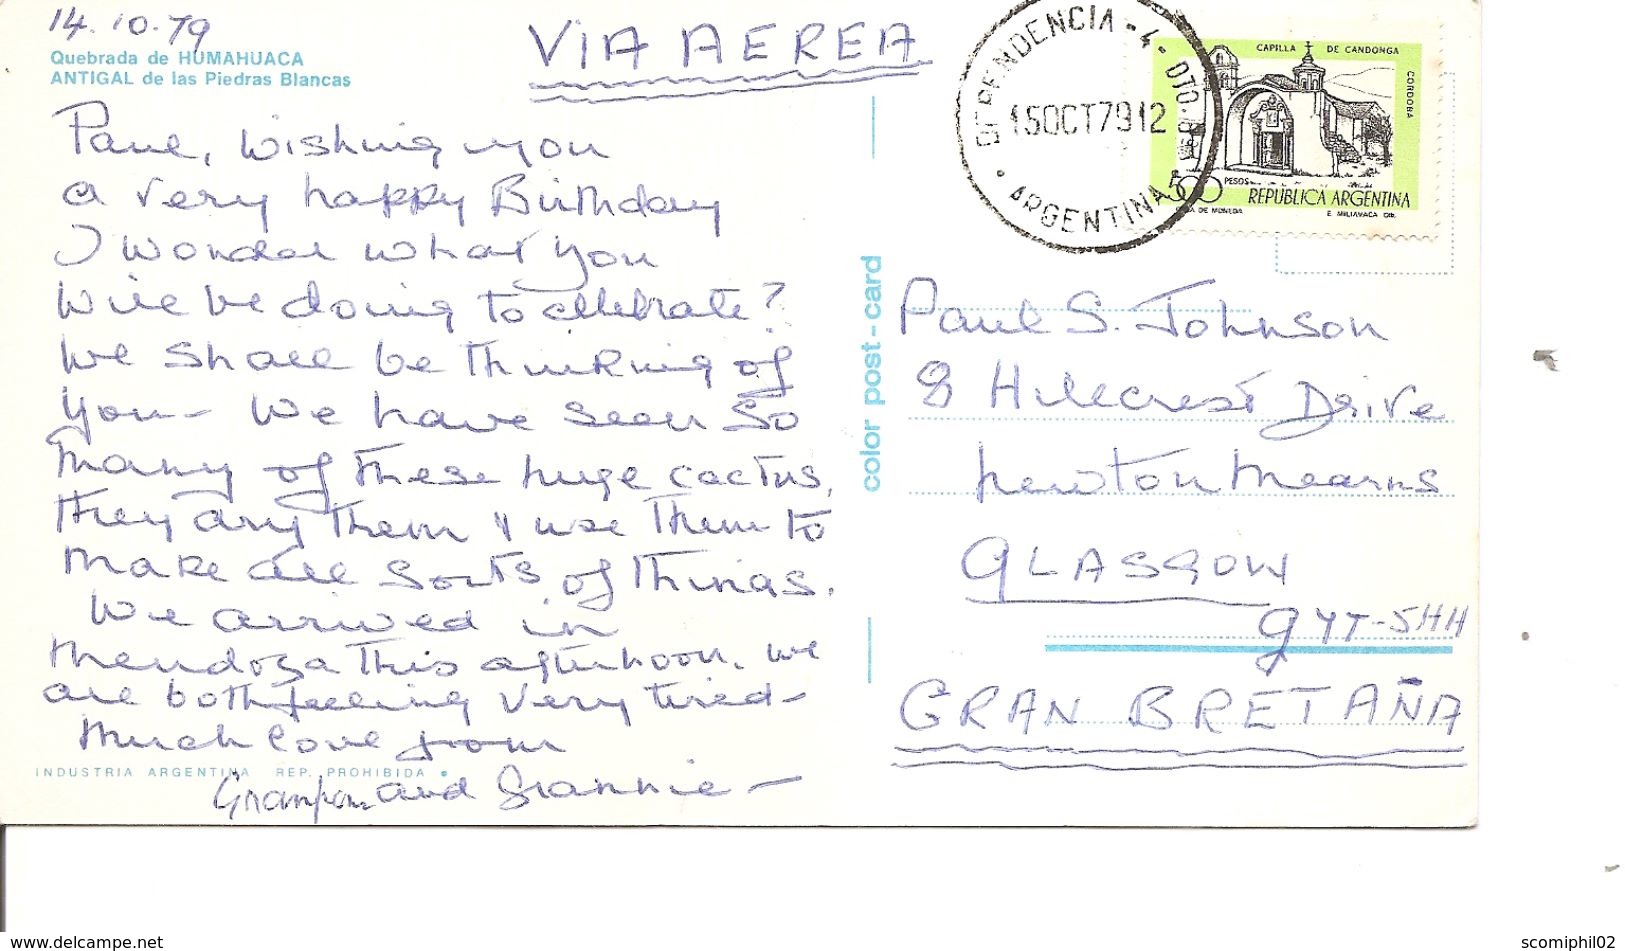 14.10.79
Quebrada de HUMAHUACA
ANTIGAL de las Piedras Blancas
VIA AEREA
Paul, Wishing you
a very happy Birthday
I wonder what you
will be doing to celebrate?
We shall be thinking of
you - We have seen so
many of these huge cactus,
they dry them & use them to
make all sorts of things.
We arrived in
Mendoza this afternoon. We
are both feeling very tired -
Much love from
Grampa and Grannie -
INDUSTRIA ARGENTINA REP. PROHIBIDA
color post-card
DEPENDENCIA - 4 - DTO.
15OCT7912
ARGENTINA
CAPILLA DE CANDONGA
CORDOBA
500 PESOS
REPUBLICA ARGENTINA
CASA DE MONEDA E. MILIAVACA DIB.
Paul S. Johnson
8 Hillcrest Drive
Newton Mearns
GLASGOW
G77-5HH
GRAN BRETAÑA
www.delcampe.net
scomiphil02